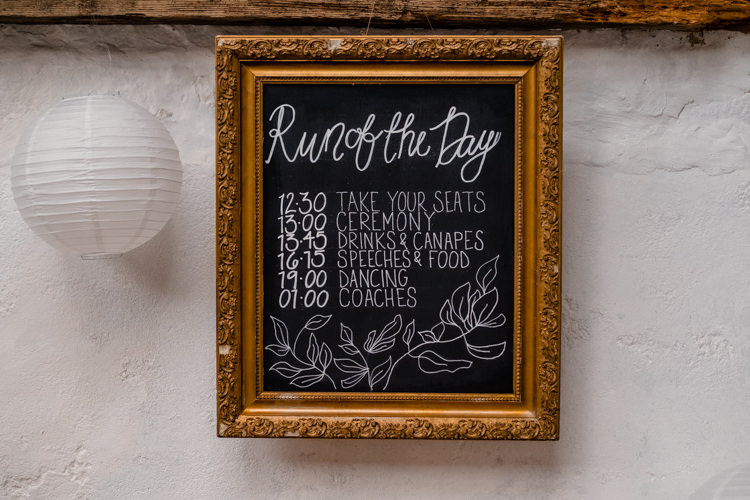 Run of the Day
12:30 TAKE YOUR SEATS
13:00 CEREMONY
13:45 DRINKS & CANAPES
16:15 SPEECHES & FOOD
19:00 DANCING
01:00 COACHES